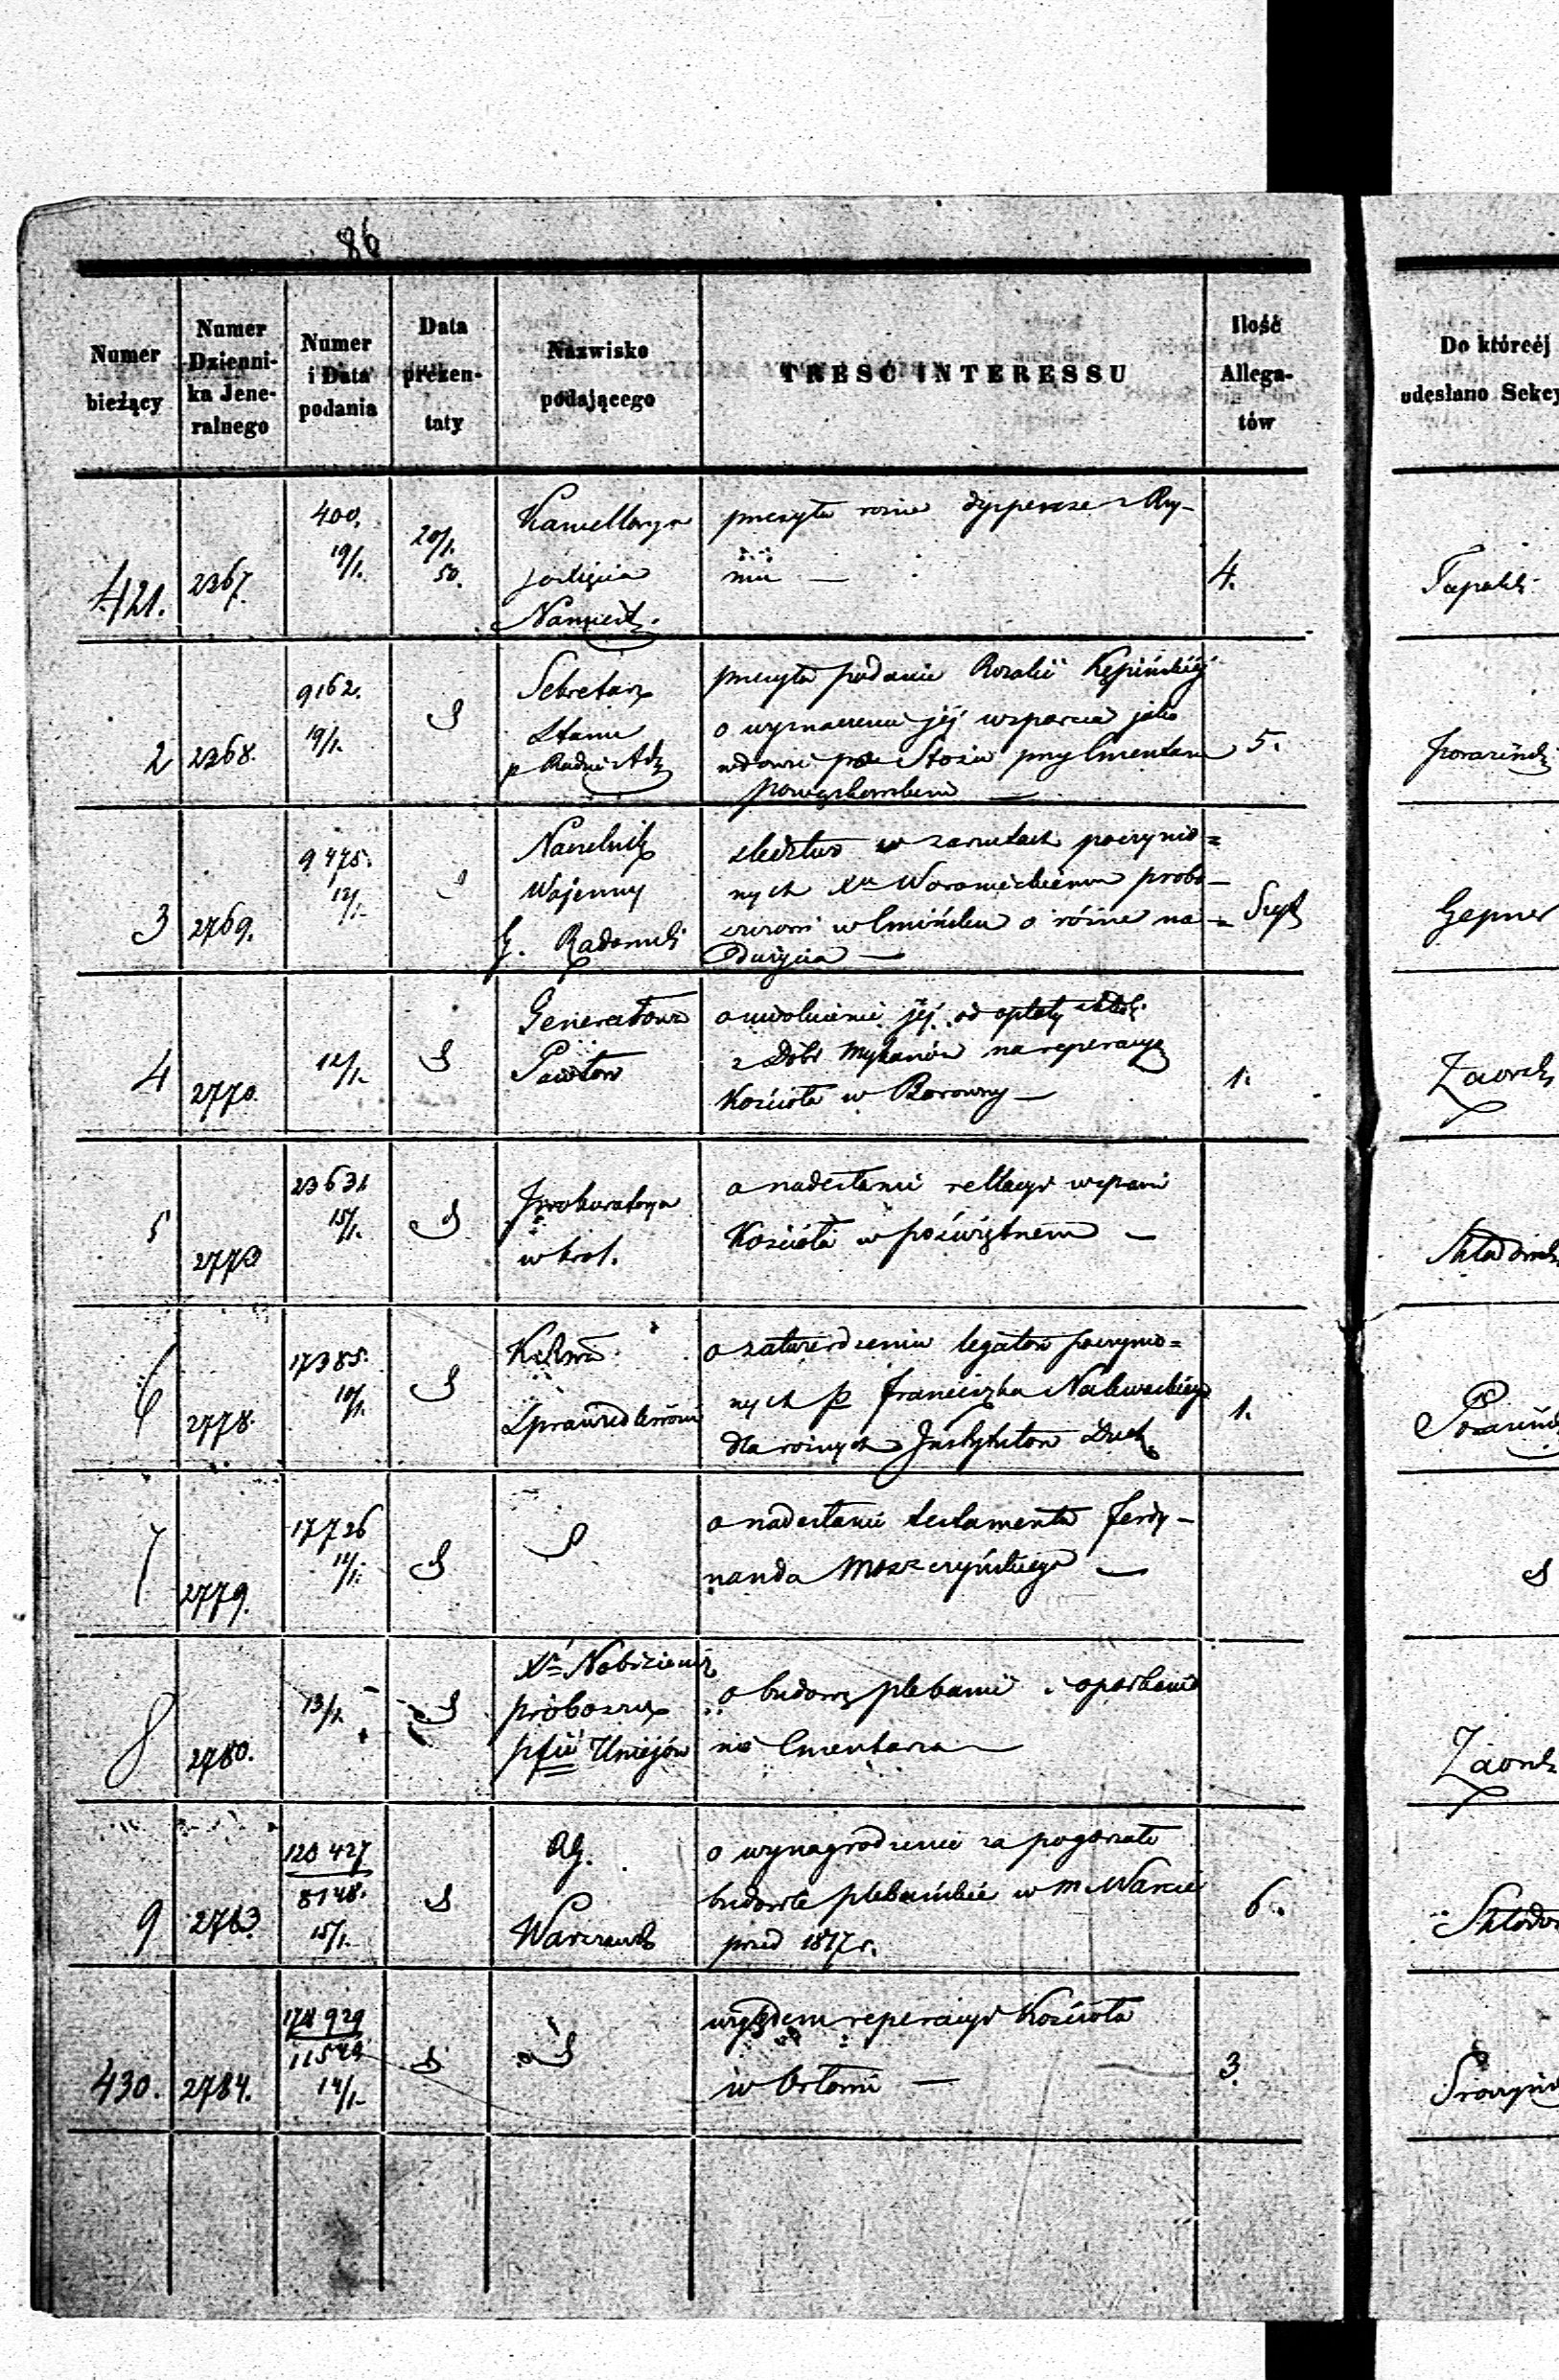 86
Numer bieżący
Numer Dzienni- ka Jene- ralnego
Numer i Data podania
Data prezen- taty
Nazwisko podającego
TREŚĆ INTERESSU
Ilość Allega- tów
Do któreéj odesłano Sekcy
421.
2367.
400.
19/1.
20/1.
50.
Kancellarya
Namiest.
przesyła różne dyspensze z Rzy-
mu —
4.
2
2368.
9162.
19/1.
Sekretarz
Stanu
przesyła podanie Rozalii Kępińskiéj
o wyznaczenie jéj wsparcia jako
wdowie po Stożu przy Cmentarzu
powązkowskim —
5.
3
2769.
9475.
12/1.
Naczelnik
Wojenny
G. Radomski
śledztwo w zarzutach poczynio=
nych Xu Woronieckiemu probo-
szczowi w Cmińsku o różne na=
dużycia —
Szyt
Gepner
4
2770.
12/1.
Generałowa
Pawłow
o uwolnienie jéj od opłaty składki
z Dóbr Mykanów na reperacyę
Kościoła w Borowny —
1.
5
2773
23631
15/1.
Prokuratorya
w Król.
o nadesłanie rellacyi w sprawie
Kościoła w poświętnem —
6
2778.
17385.
10/1.
K. Rzą
Sprawiedliwości
o zatwierdzenie legatów poczynio=
nych pz Franciszka Nalewackiego
dla różnych Instytutów Duch.
1.
7
2779.
17726
11/1.
o nadesłanie testamentu Ferdy-
nanda Moszczyńskiego —
8
2780.
13/1.
Xs Nabizien
proboszcz
pfii Uniejów
o budowę plebanii i oparkanie-
nie Cmentarza —
9
2783
120427
8148.
15/1.
RG.
Warszawski
o wynagrodzenie za pogorzałe
budowle plebańskie w m Warcie
przed 1817 r.
6.
430.
2784.
178929
11549
14/1.
względem reperacyi Kościoła
w Orłowie —
3.